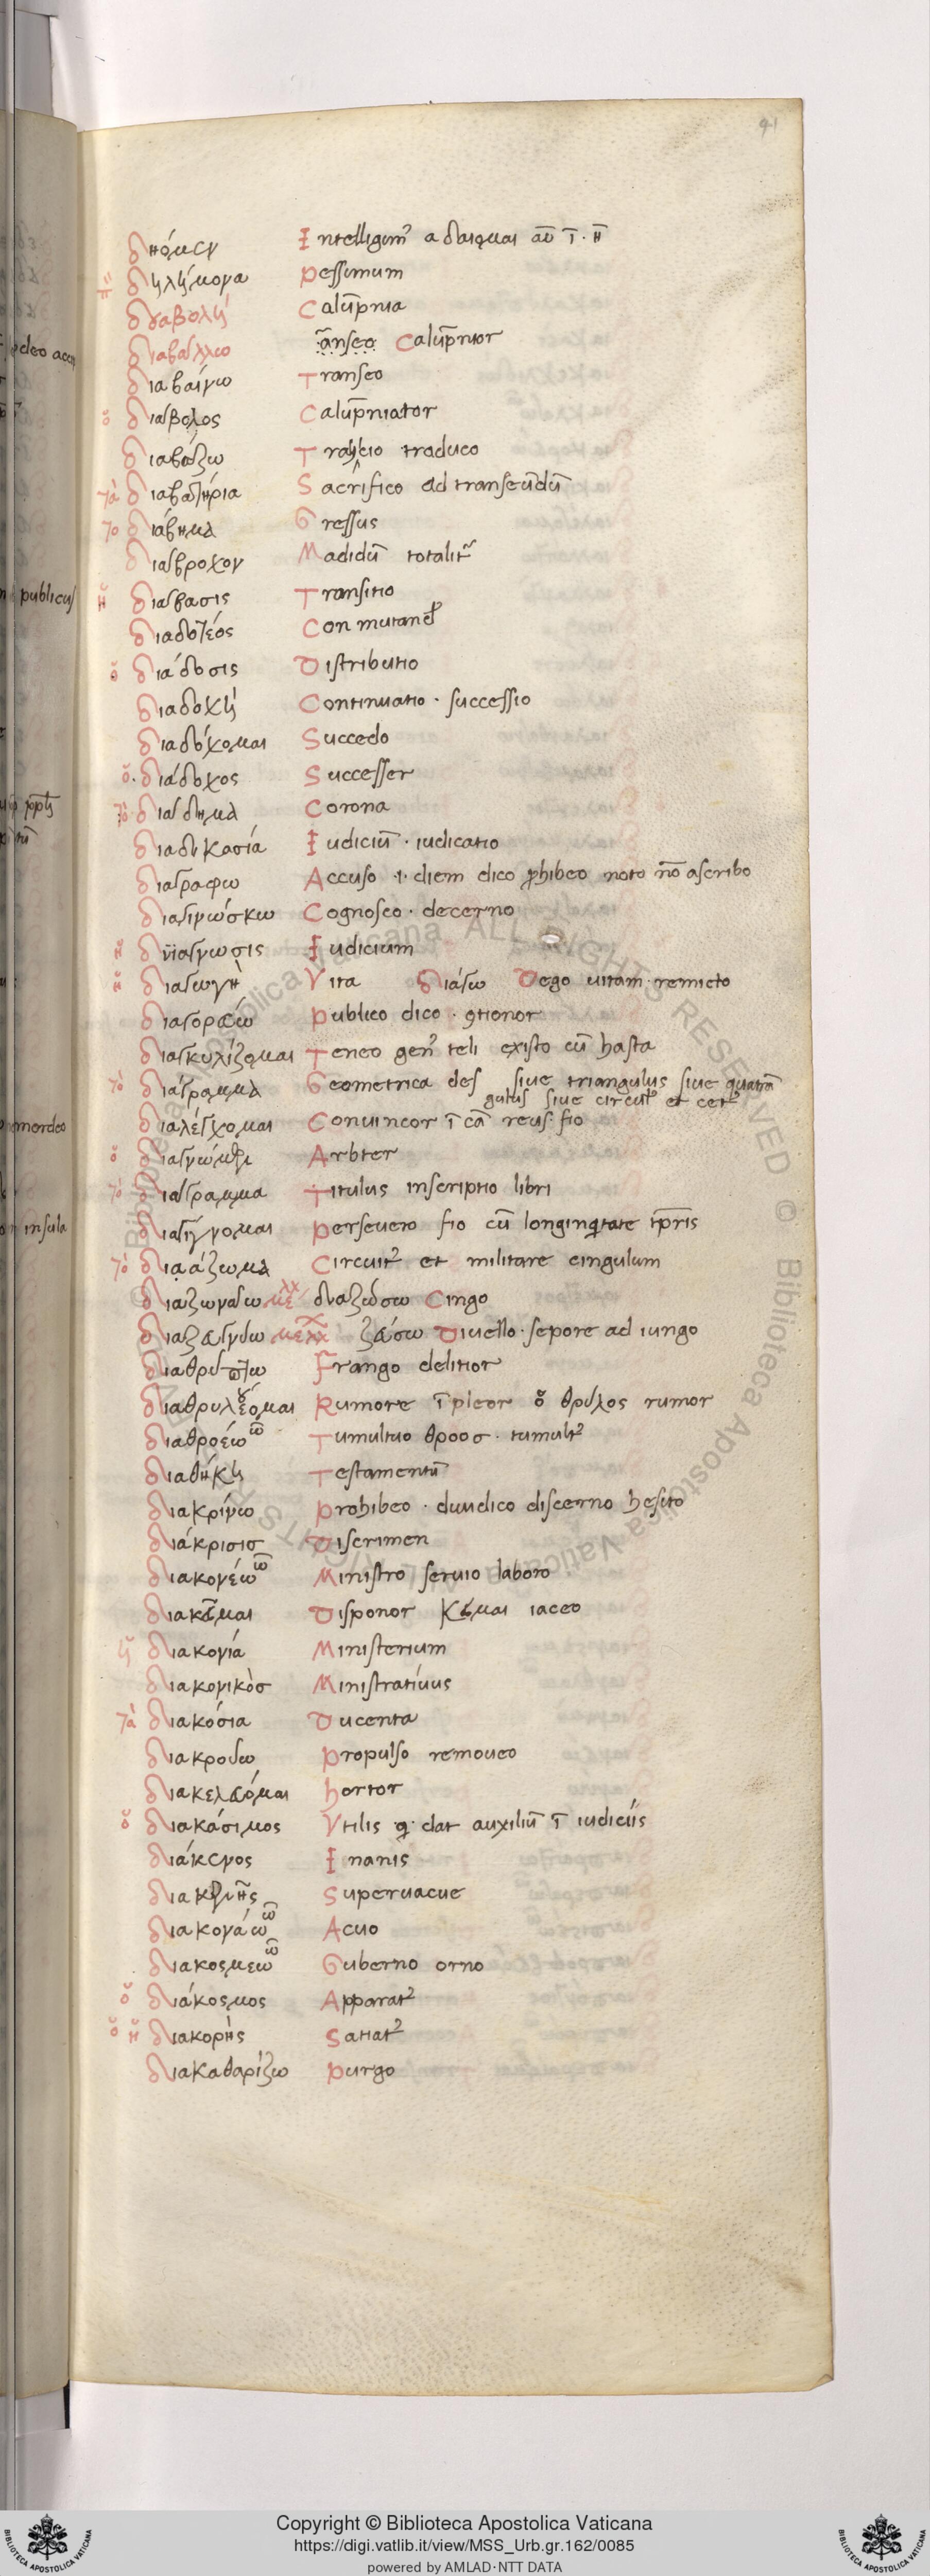 41
δηόμεν Intelligim᷒ a δαιομαι αυ ῑ · η̄
δηλήμονα Pessimum
διαβολή Calūpnia
διαβάλλω Calūpnior
διαβαίνω Transeo
ὁ διάβολος Calūpniator
διαβάζω Trahicio traduco
τὰ διαβατήρια Sacrifico ad transeūdū
το διάβημα Gressus
διάβροχον Madidū totalit᷒
ἡ διάβασις Transitio
διαδοτέος
ὁ διάδοσις Distributio
διαδοχή Continuatio · successio
διαδόχομαι Succedo
ὁ · διάδοχος Successer
τὸ διάδημα Corona
διαδικασία Iudiciū · iudicatio
διαγραφω Accuso ·i· diem dico ꝓhibeo noto nō ascribo
διαγινώσκω Cognosco · decerno
ἡ διάγνωσις Iudicium
ἡ διαγωγὴ Vita διάγω Dego uitam · remicto
διαγοράω Publico dico · ꝯtionor
διαγκυλίζομαι Teneo gen᷒ teli existo cū hasta
τὸ διάγραμμα Geometrica des siue triangulus siue quatrā
gulus siue circul᷒ et cet᷒
διαλέγχομαι Conuincor ī cā reus · fio
ὁ Arbter
τὸ διάγραμμα Titulus inscriptio libri
διαγίγνομαι Perseuero fio cū longinqitate tp̄ris
τὸ διαάζωμα Circuit᷒ et militare cingulum
διαζωνύω διαζώσω Cingo
ζεύσω Diuello · sepore ad iungo
διαθρύπτω Frango delitior
διαθρυλέομαι Rumore īpleor ὁ θρύλος rumor
διαθροέω ῶ Tumultuo θροοσ · tumult᷒
διαθήκη Testamentū
διακρίνω Prohibeo · diiudico discerno hesito
διάκρισισ Discrimen
διακονέω ῶ Ministro seruio laboro
διακεῖμαι Disponor κεῖμαι iaceo
ἡ διακονία Ministerium
διακονικὸσ Ministratiuus
τὰ διακόσια Ducenta
διακρούω Propulso remoueo
διακελεύομαι hortor
ὁ διακάσιμος Vtilis q· dat auxiliū ī iudiciis
διάκενος Inanis
διακενῆς Superuacue
διακονάω ῶ Acuo
διακοσμεω ῶ Guberno orno
ὁ διάκοσμος Apparat᷒
ὁ ἡ διακορὴς Satiat᷒
διακαθαρίζω Purgo
publicus
mordeo
insula
Copyright © Biblioteca Apostolica Vaticana
https://digi.vatlib.it/view/MSS_Urb.gr.162/0085
powered by AMLAD·NTT DATA